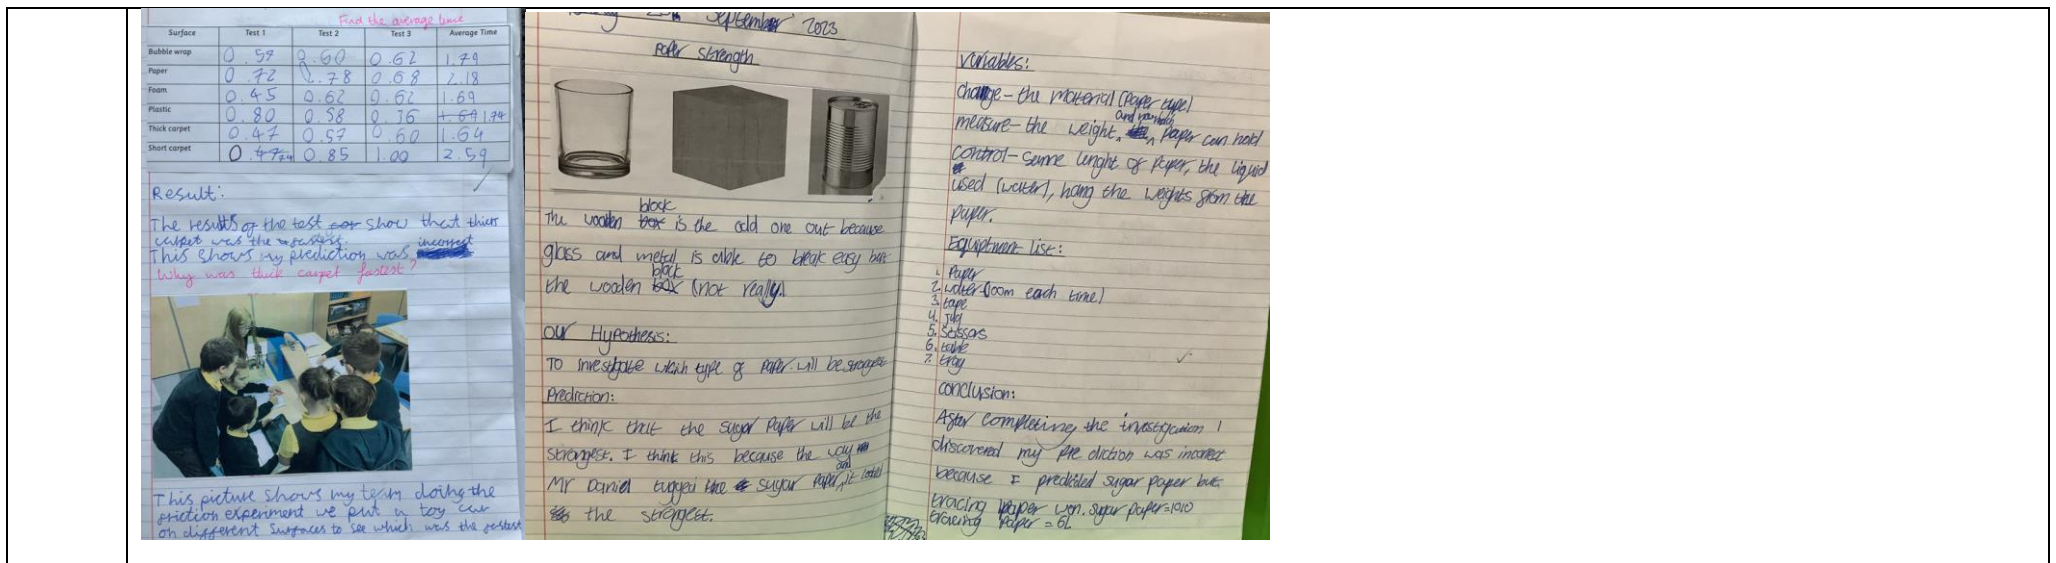 Find the average time
Surface Test 1 Test 2 Test 3 Average Time
Bubble wrap 0.57 0.60 0.62 1.79
Paper 0.72 0.78 0.68 2.18
Foam 0.45 0.62 0.62 1.69
Plastic 0.80 0.58 0.36 1.74
Thick carpet 0.47 0.57 0.60 1.64
Short carpet 0. 0.85 1.00 2.59
Result:
The results of the test show that thick
carpet was the fastest.
This shows my prediction was incorrect
Why was thick carpet fastest?
This picture shows my team doing the
friction experiment we put a toy car
on different surfaces to see which was the fastest
September 2023
Paper strength
The wooden block is the odd one out because
glass and metal is able to break easy but
the wooden block (not really)
Our Hypothesis:
To investigate which type of paper will be strongest
Prediction:
I think that the sugar paper will be the
strongest. I think this because the way
Mr Daniel tugged the sugar paper and it looked
the strongest.
Variables:
change - the material (paper type)
measure - the weight and paper can hold
control - same lenght of paper, the liquid
used (water), hang the weights from the
paper.
Equiptment list:
1. Paper
2. water (100m each time)
3. tape
4. jug
5. scissors
6. table
7. tray
conclusion:
After completing the investigation I
discovered my prediction was incorrect
because I predicted sugar paper but
tracing paper won. sugar paper=1010
tracing paper = 6L